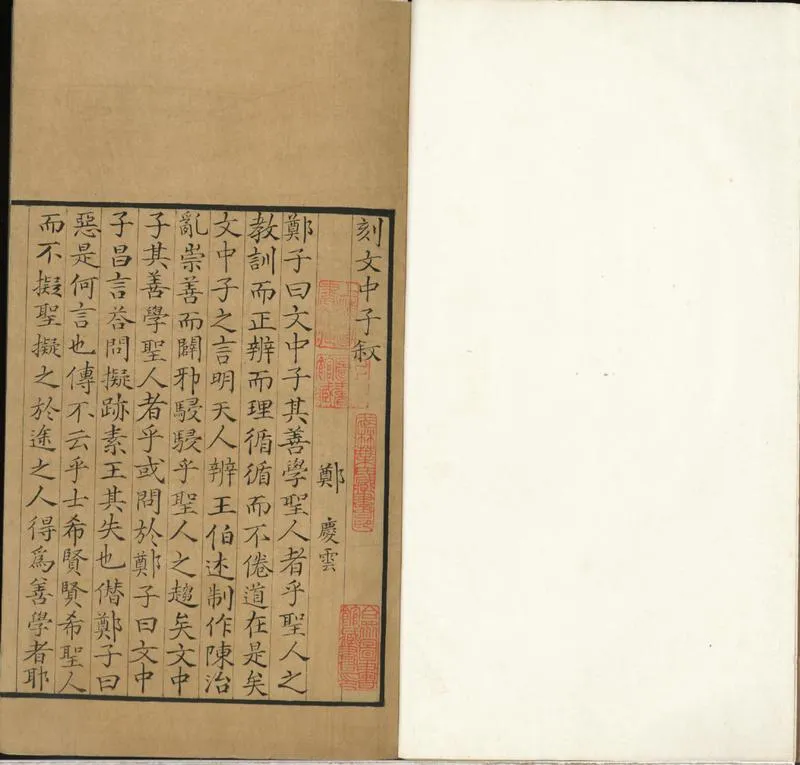 刻文中子敘
鄭慶雲
鄭子曰文中子其善學聖人者乎聖人之
教訓而正辨而理循循而不倦道在是矣
文中子之言明天人辨王伯述制作陳治
亂崇善而闢邪駸駸乎聖人之趨矣文中
子其善學聖人者乎或問於鄭子曰文中
子昌言荅問擬跡素王其失也僭鄭子曰
惡是何言也傳不云乎士希賢賢希聖人
而不擬聖擬之於途之人得爲善學者耶